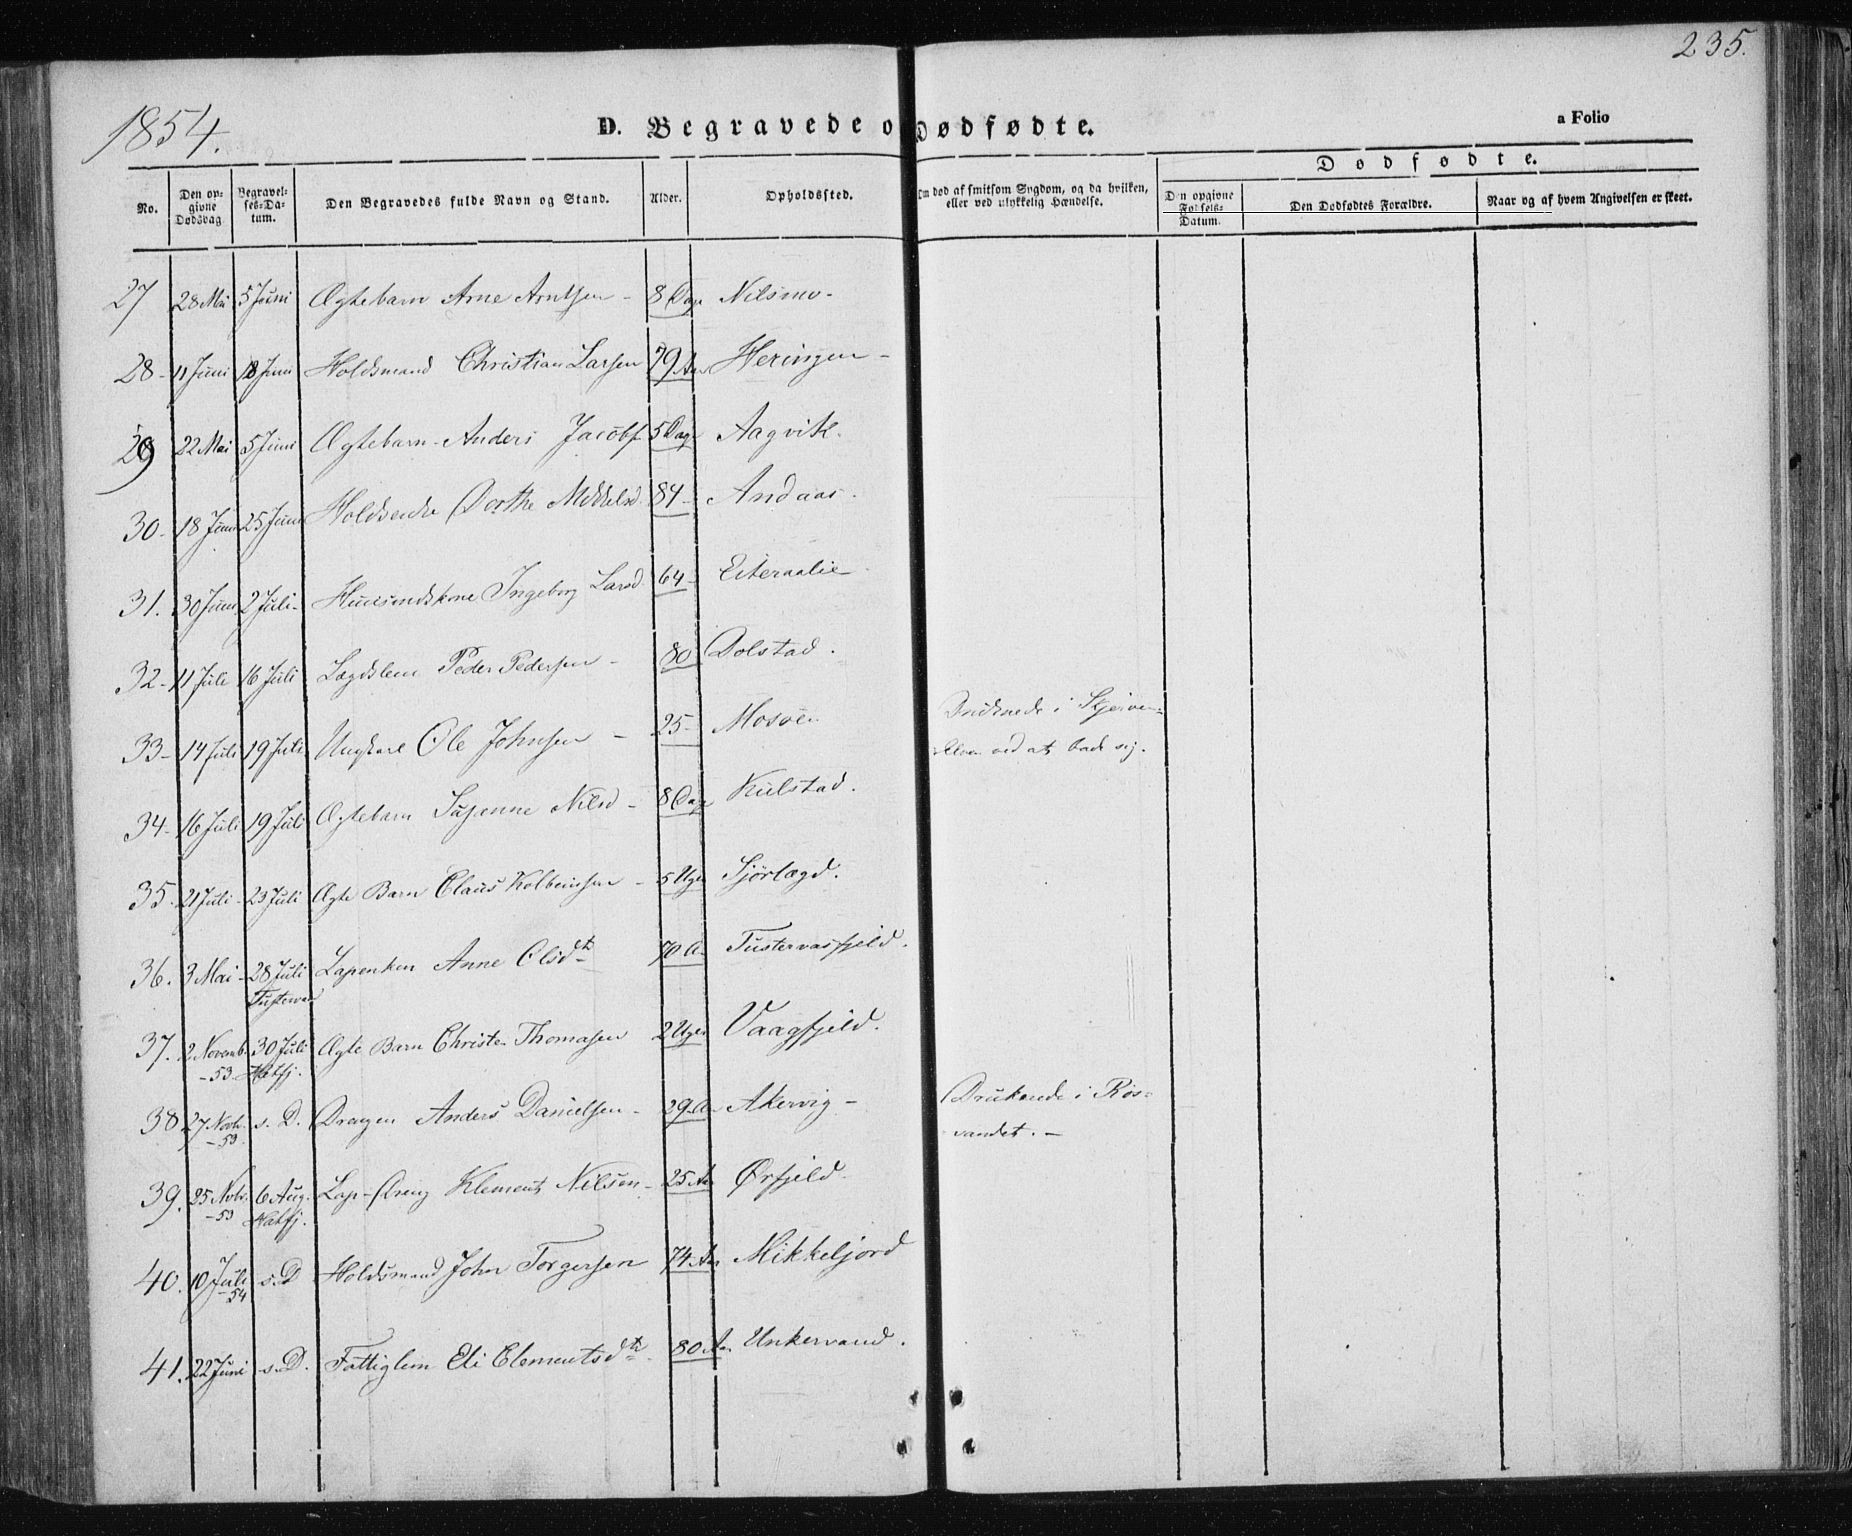 235.
1854.
D. Begravede o Dødfødte.
a Folio
No.
Den opgivne Dødsdag
Begravelses-Datum.
Den Begravedes fulde Navn og Stand.
Alder.
Opholdssted.
Om død af smitsom Sygdom, og da hvilken, eller ved ulykkelig Hændelse.
Dødfødte.
Den opgivne Fødsels-Datum.
Den Dødfødtes Forældre.
Naar og af hvem Angivelsen er skeet.
27 28 Mai 5 Juni Ægtebarn Arne Arntsen - 8 Dage Nilsmo -
28 - 11 Juni 18 Juni Holdsmand Christian Larsen 79 Aar Heringen -
29 22 Mai 5 Juni Ægtebarn Anders Jacobs. 5 Dage Aagvik.
30 - 18 Juni 25 Juni Holdsenke Dorthe Mikkelsd. 84 - Andaas.
31. 30 Juni 2 Juli - Huusmdskone Ingeborg Larsd. 64 - Eiteraalie
32 - 11 Juli 16 Juli Lægdslem Peder Pedersen - 80 Dolstad.
33 - 14 Juli 19 Juli Ungkarl Ole Johnsen - 25 - Mosøen Druknede i Skjerven-
elven ved at bade sig.
34 - 16 Juli 19 Juli Ægtebarn Susanne Nilsd - 8 Dage Kulstad.
35. 21 Juli - 23 Juli Ægte Barn Claus Kolbeinsen - 5 Uger Sjørlægd.
36. 3 Mai - 28 Juli Lapenken Anne Olsdt. 70 A. Tustervasfjeld.
Tustervas
37. 2 Novemb. 30 Juli Ægte Barn Christen Thomasen 2 Uger Vaagfjeld.
- 53 Hatfj.
38 27 Novb. s. D. Drengen Anders Danielsen - 29 A. Akervig - Druknede i Røs-
- 53. vandet. -
39. 25 Novb. 6 Aug. Lap-Dreng Klement Nilsen - 25 Aar Ørfjeld.
- 53 Hatfj.
40. 10 Juli s. D Holdsmand John Torgersen 74 Aar Mikkeljord
- 54
41. 22 Juni s. D. Fattiglem Eli Clementsdt. 80 Aar Unkervand.